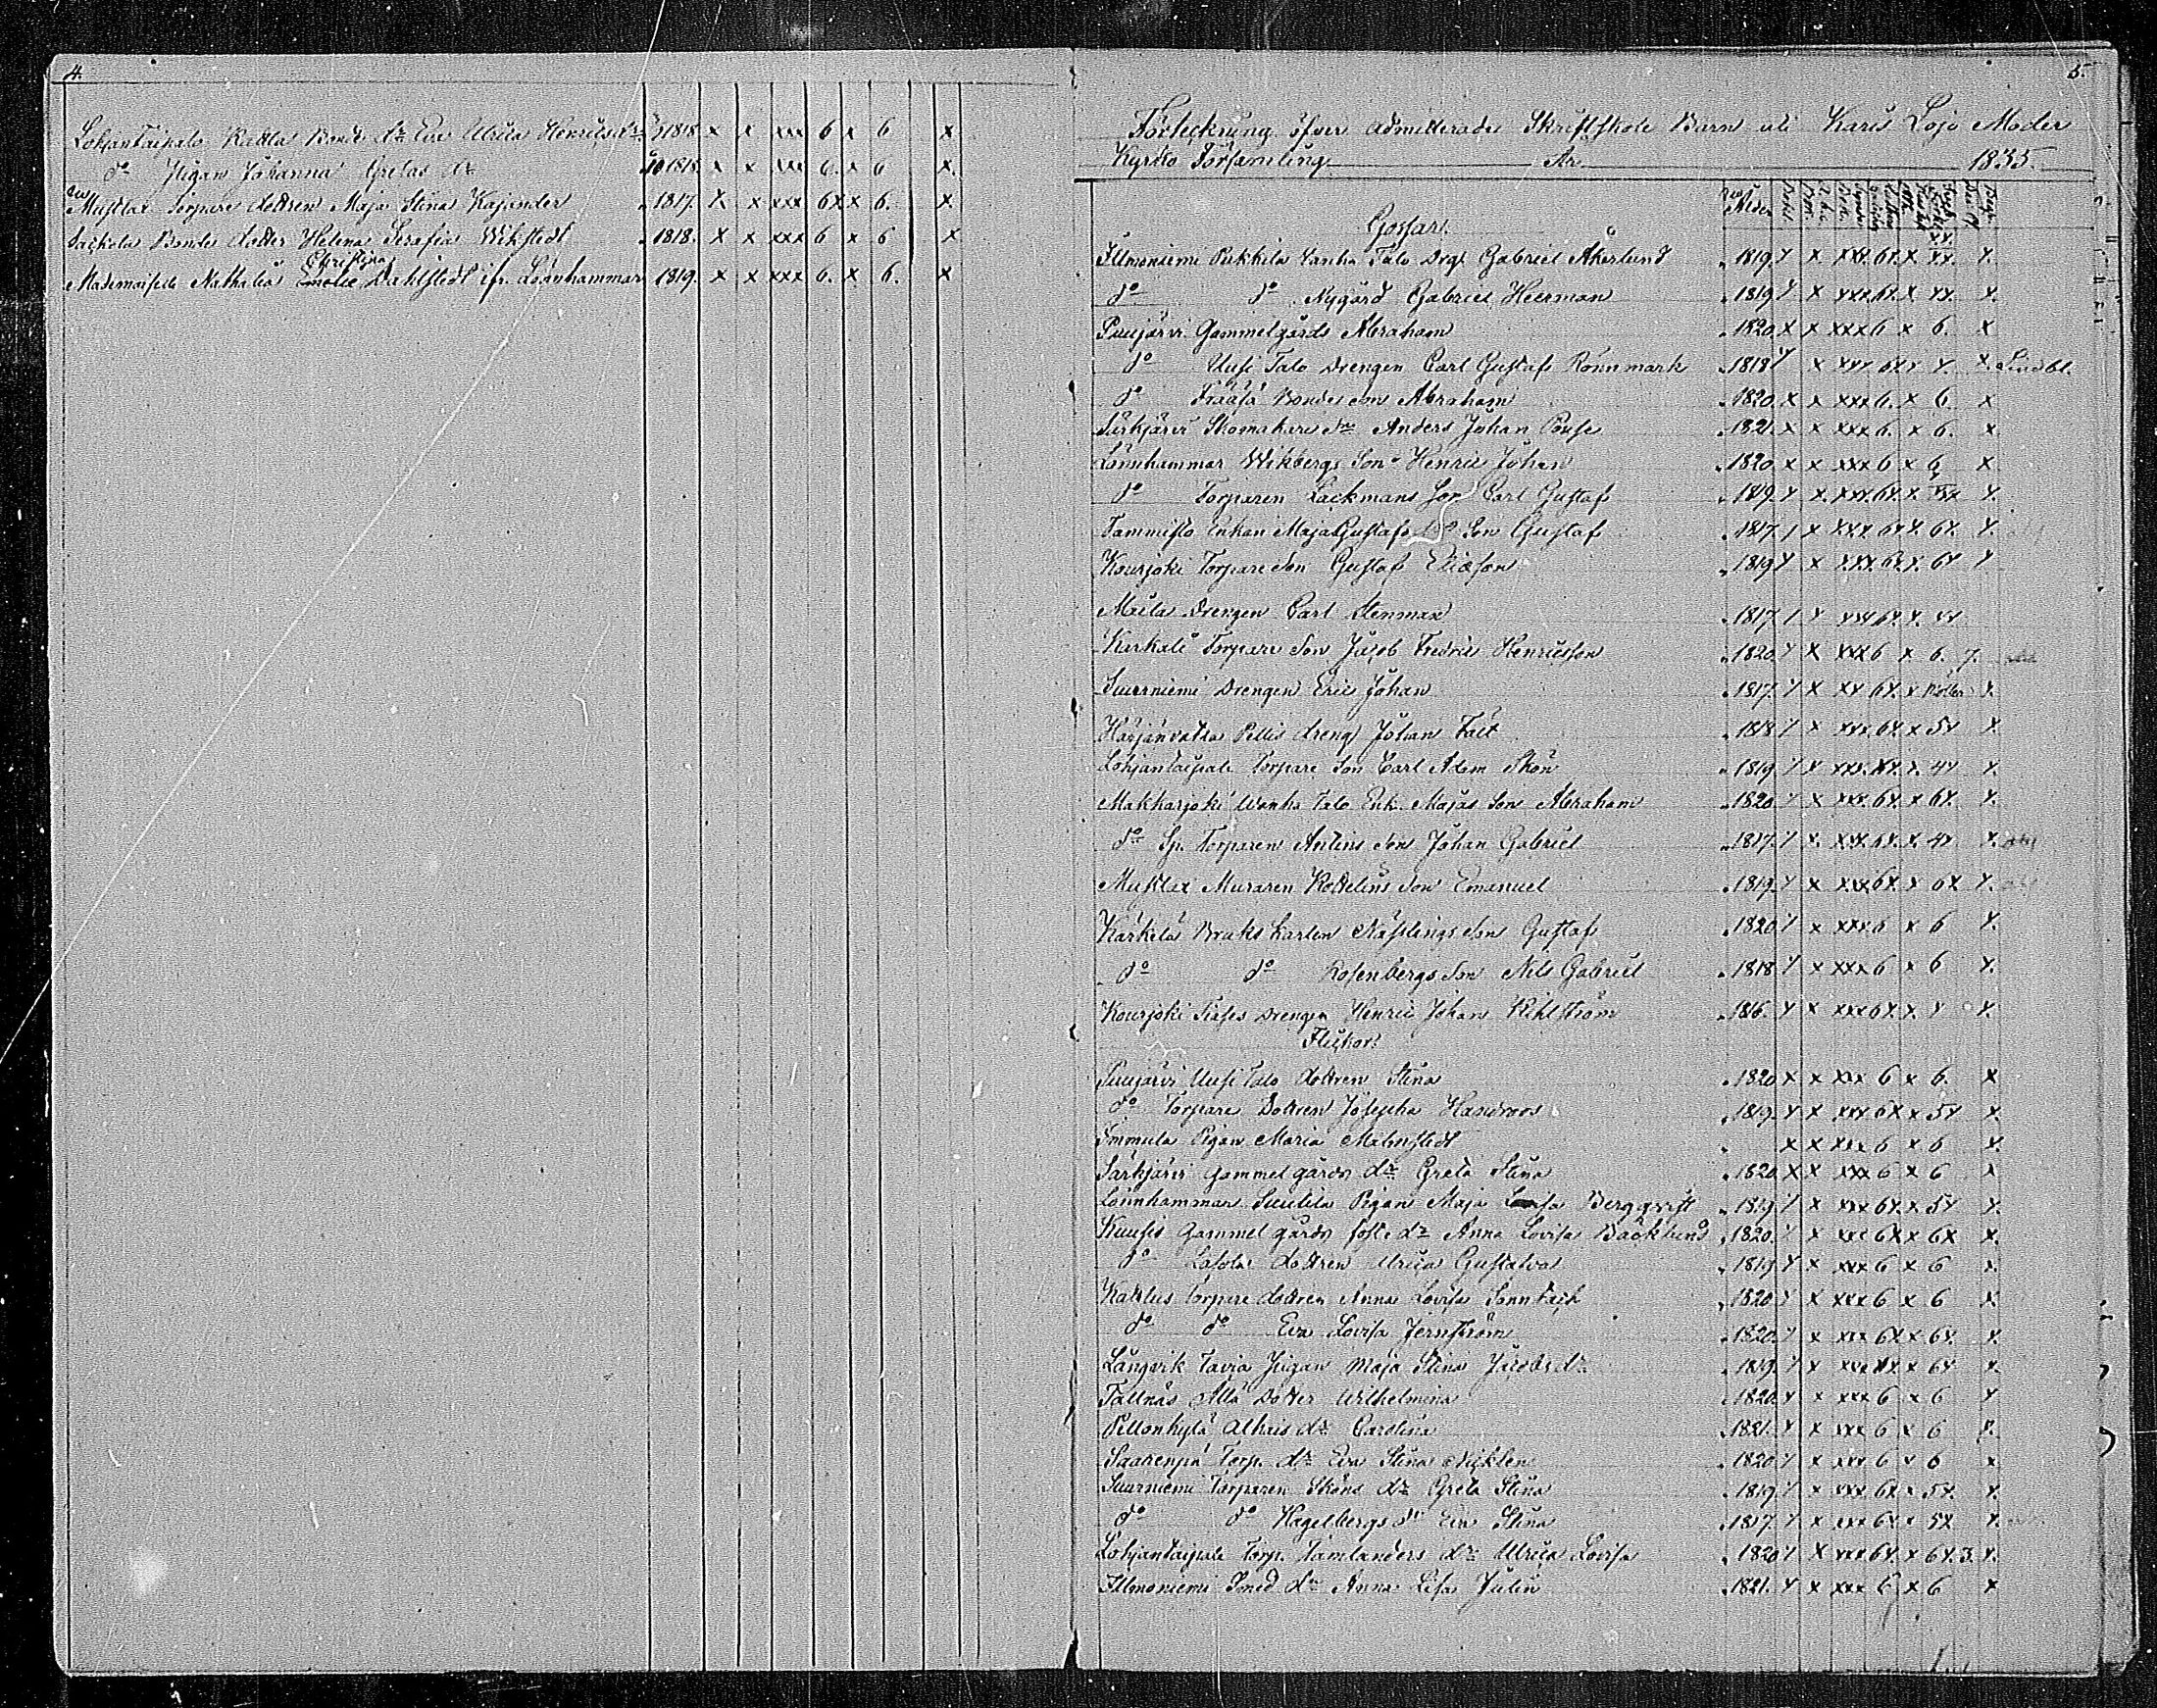 4.
Lohjantaipale Kattla Bonde dr Eva Ulrica Henricsdr 1818 x x xxx 6 x 6 x
do Pigan Johanna Gretas dr 1818. x x xxx 6. x 6 x.
Mustlax Torpare dottren Maja Stina Kajander 1817. x x xxx 6x x 6. x.
Sackola Bonde dotter Helena Serafia Wikstedt 1818. x x xxx 6 x 6 x
Christina
Mademoiselle Nathalia Emelie Dahlstedt ifr. Lönnhammar 1819. x x xxx 6. x 6. x
5.
Förteckning öfver admitterade Skriftskole Barn uti Karis Lojo Moder
Kyrko Församling År 1835.
Gossar.
Ållder
Illmoniemi Pukkila Vanha Talo Drg. Gabriel Åkerlund 1819. x x xxx. 6x. x. xx. x.
do do Nygård Gabriel Heerman 1819 x x xxx 6x. x xx. x.
Puujärvi Gammelgårds Abraham 1820. x x xxx 6 x 6. x
do Uusi Talo Drengen Carl Gustaf Rönnmark 1818 x x xxx 6x x x. x.
do Fräätä Bonde son Abraham 1820. x x xxx 6. x 6. x
Särkjärvi Skomakare Son Anders Johan 1821. x x xxx 6. x 6. x
Lönnhammar Wikbergs Son Henric Johan 1820 x x xxx 6 x 6 x
do Torparen Lackmans Son Carl Gustaf 1819. x x. xxx. 6x x. xx x.
Tammisto Enkan Maja Gustafs Son Gustaf 1817. 1 x xxx 6x x. 6x x.
Kourjoki Torpare Son Gustaf Ericson 1819 x x xxx. 6x. x. 6x x
Maila Drengen Carl Stenman 1817. 1 x xxx 6x x. xx
Karkali Torpare Son Jacob Fredric Henricsson 1820. x x xxx 6 x 6. 7.
Suurniemi Drengen Eric Johan 1817. x x xx 6x. x x.
Härjänvatsa Pellis dreng Johan Fält 1818 x x xxx 6x. x 5x x.
Lohjantaipale Torpare Son Carl Adam Skön 1819 x x xxx. x. 4x x.
Makkarjoki Wanha Talo Enk. Majas Son Abraham 1820. x x xxx 6x. x 6x. x.
do Sp. Torparen Anttins Son Johan Gabriel 1817. x x. xxx. 6x. x. 4x x.
Mustlax Muraren Kottelins Son Emanuel 1819. x x xxx 6x x 6x x.
Kärkelä Bruks Karlen Näslings Son Gustaf 1820 x x xxx 6 x 6 x.
do do Rosenbergs Son Nils Gabriel 1818 x x xxx 6 x 6 x.
Kourjoki Drengen Henric Johan Kihlström 1816. x x xxx 6x x. x x.
Flickor.
Puujärvi Uusi Talo dottren Stina 1820 x x xxx 6 x 6. x
do Torpare Dottren Josepha Handroos 1819. x x xxx 6x x 5x x.
Immula Pigan Maria Malmstedt x x xxx 6 x 6 x.
Särkjärvi Gammelgårds dr Greta Stina 1820 x x xxx 6 x 6 x
Lönnhammar Suutila Pigan Maja Berggvist 1819 x x xxx 6x. x 5x x.
Kuusis Gammelgårds fost. dr Anna Lovisa Bäcklund 1820. x x xxx 6x x 6x x.
do Lasola dottren Ulrica Gustava 1819 x x xxx 6 x 6 x.
Kattlus Torpare dottren Anna Lovisa Sonntack 1820 x x xxx 6 x 6 x
do do Eva Lovisa Jernström 1820. x x xxx 6x x 6x. x.
Långvik Pigan Maja Stina Jacobs dr 1819. x x xxx x 6x x.
Tallnäs Dotter Wilhelmina 1820 x x xxx 6 x 6 x
Pellonkylä Alhais dr Carolina 1821. x x xxx 6 x 6 x.
Saarenpä Torp. dr Eva Stina Nicklen 1820 x x xxx 6 x 6 x
Suurniemi Torparen Sköns dr Greta Stina 1819 x x xxx. 6x x 5x. x.
do do Hagelbergs dr Eva Stina 1817. x x xxx 6x x 5x x.
Lohjantaipale Torp. Tamlanders dr Ulrica Lovisa 1820 x x xxx 6x. x 6x. 3. x.
Illmoniemi Smed dr Anna Lisa Julin 1821. x x xxx 6 x 6 x